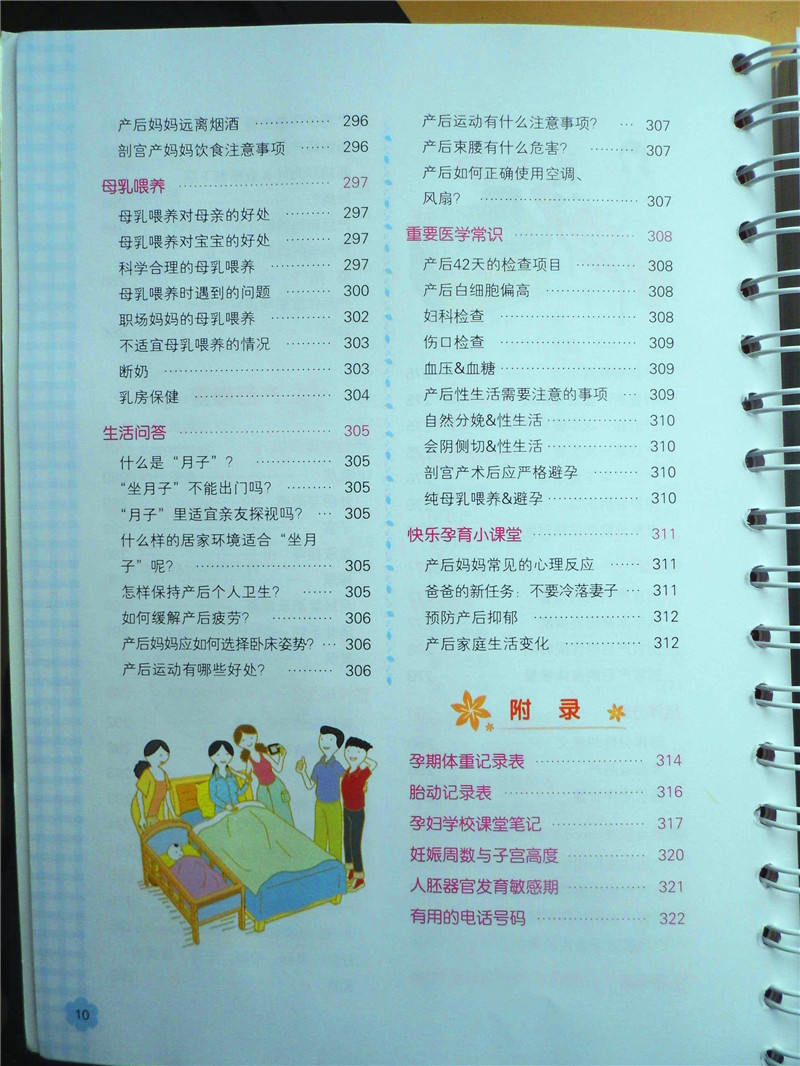 产后妈妈远离烟酒 …………… 296
剖宫产妈妈饮食注意事项 ……… 296
母乳喂养 ………………………… 297
母乳喂养对母亲的好处 ………… 297
母乳喂养对宝宝的好处 ………… 297
科学合理的母乳喂养 …………… 297
母乳喂养时遇到的问题 ………… 300
职场妈妈的母乳喂养 …………… 302
不适宜母乳喂养的情况 ………… 303
断奶 ……………………………… 303
乳房保健 ………………………… 304
生活问答 ………………………… 305
什么是“月子”? ……………… 305
“坐月子”不能出门吗? ……… 305
“月子”里适宜亲友探视吗? … 305
什么样的居家环境适合“坐月
子”呢? ………………………… 305
怎样保持产后个人卫生? ……… 305
如何缓解产后疲劳? …………… 306
产后妈妈应如何选择卧床姿势? … 306
产后运动有哪些好处? ………… 306
产后运动有什么注意事项? … 307
产后束腰有什么危害? ……… 307
产后如何正确使用空调、
风扇? ………………………… 307
重要医学常识 ………………… 308
产后42天的检查项目 ………… 308
产后白细胞偏高 ……………… 308
妇科检查 ……………………… 308
伤口检查 ……………………… 309
血压&血糖 …………………… 309
产后性生活需要注意的事项 … 309
自然分娩&性生活 …………… 310
会阴侧切&性生活 …………… 310
剖宫产术后应严格避孕 ……… 310
纯母乳喂养&避孕 …………… 310
快乐孕育小课堂 ……………… 311
产后妈妈常见的心理反应 …… 311
爸爸的新任务：不要冷落妻子 … 311
预防产后抑郁 ………………… 312
产后家庭生活变化 …………… 312
附 录
孕期体重记录表 ……………… 314
胎动记录表 …………………… 316
孕妇学校课堂笔记 …………… 317
妊娠周数与子宫高度 ………… 320
人胚器官发育敏感期 ………… 321
有用的电话号码 ……………… 322
10